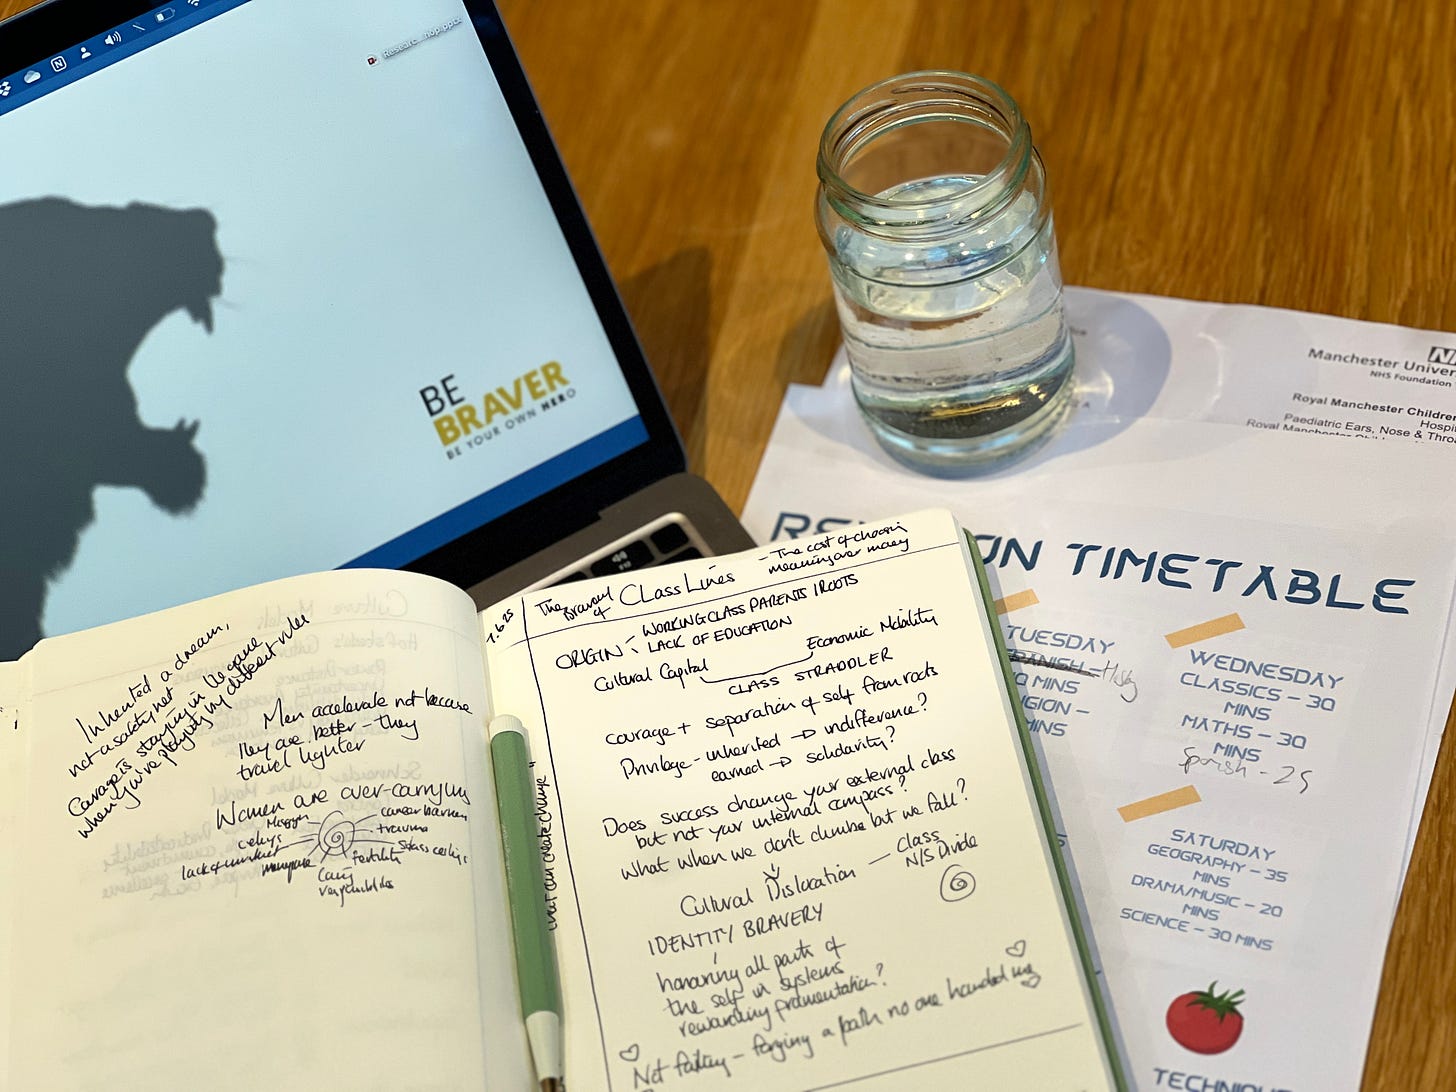 Researc...hop.pptx
BE
BRAVER
BE YOUR OWN HERO
Manchester Univer
NHS Foundation
Royal Manchester Children
Hospi
Paediatric Ears, Nose & Thro
Royal Manchester
ON TIMETABLE
TUESDAY
SPANISH
MINS
GION –
MINS
WEDNESDAY
CLASSICS – 30
MINS
MATHS – 30
MINS
Spanish - 25
SATURDAY
GEOGRAPHY – 35
MINS
DRAMA/MUSIC – 20
MINS
SCIENCE – 30 MINS
TECHNIQUE
Inherited a dream,
not a safety net
Courage is staying in the game
when you're playing by different rules
Men accelerate not because
they are better - they
travel lighter
Women are over-carrying
career barriers
trauma
glass ceilings
fertility
Caring
responsibilities
menopause
1.6.25
The Bravery of Class Lines
- The cost of choosing
meaning over money
ORIGIN: WORKING CLASS PARENTS / ROOTS
LACK OF EDUCATION
Cultural Capital
Economic Mobility
CLASS STRADDLER
courage + separation of self from roots
Privilege - inherited → indifference?
earned → solidarity?
Does success change your external class
but not your internal compass?
What when we don't climb but we fall?
Cultural Dislocation
— Class
N/S Divide
IDENTITY BRAVERY
honouring all parts of
the self in systems
rewarding fragmentation?
Not failing - forging a path no one handed me